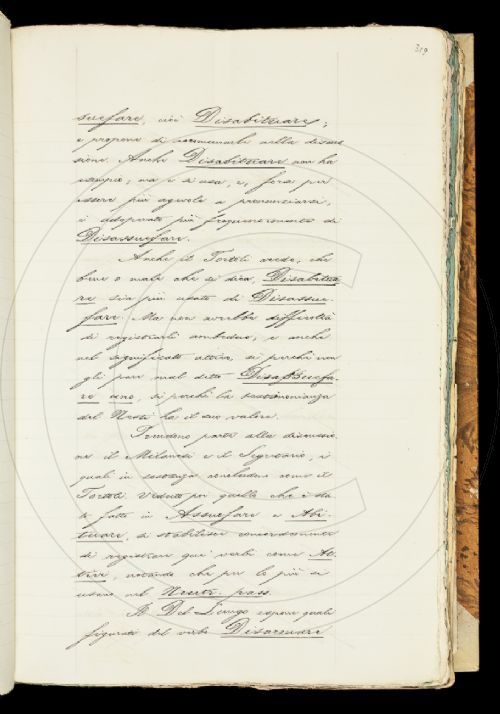 319
suefare, cioè Disabituare;
e propone di accomunarli nella discus
sione. Anche Disabituare non ha
esempio, ma è di uso, e, forse per
essere più agevole a pronunciarsi,
è adoperato più frequentemente di
Disassuefare.
Anche il Tortoli crede, che
bene o male che si dica, Disabitua
re sia più usato di Disassue
fare. Ma non avrebbe difficoltà
di registrarli ambedue, e anche
nel significato attivo, sì perchè non
gli pare mal detto Disassuefa
re uno, sì perchè la testimonianza
del Nesti ha il suo valore.
Prendono parte alla discussio
ne il Milanesi e il Segretario, i
quali in sostanza concludono come il
Tortoli. Veduto poi quello che è sta
to fatto in Assuefare e Abi
tuare, si stabilisce concordemente
di registrare quei verbi come At
tivi, notando che per lo più si
usano nel Neutr. pass.
Il Del Lungo espone quali
figurato del verbo Disarmare